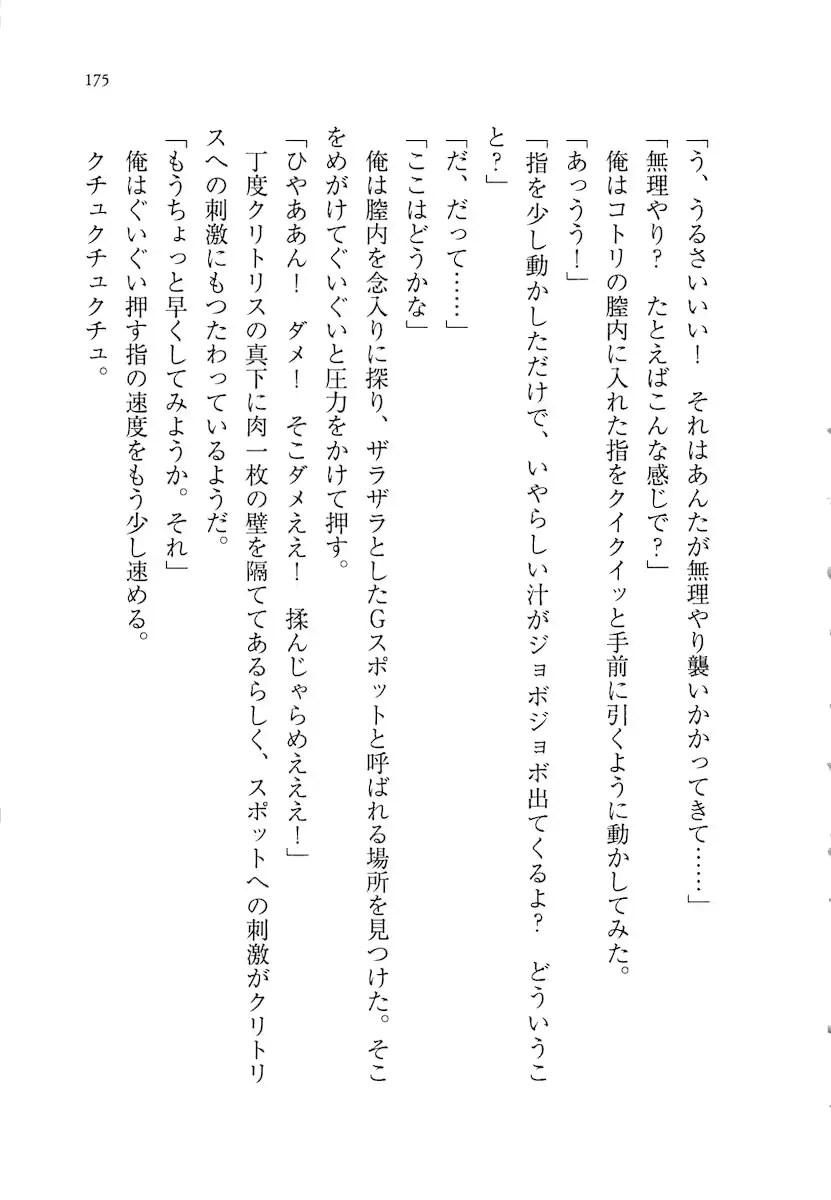 175
「う、うるさいいい！　それはあんたが無理やり襲いかかってきて……」
「無理やり？　たとえばこんな感じで？」
　俺はコトリの膣内に入れた指をクイクイッと手前に引くように動かしてみた。
「あっうう！」
「指を少し動かしただけで、いやらしい汁がジョボジョボ出てくるよ？　どういうこ
と？」
「だ、だって……」
「ここはどうかな」
　俺は膣内を念入りに探り、ザラザラとしたＧスポットと呼ばれる場所を見つけた。そこ
をめがけてぐいぐいと圧力をかけて押す。
「ひやああん！　ダメ！　そこダメええ！　揉んじゃらめえええ！」
　丁度クリトリスの真下に肉一枚の壁を隔ててあるらしく、スポットへの刺激がクリトリ
スへの刺激にもつたわっているようだ。
「もうちょっと早くしてみようか。それ」
　俺はぐいぐい押す指の速度をもう少し速める。
　クチュクチュクチュ。